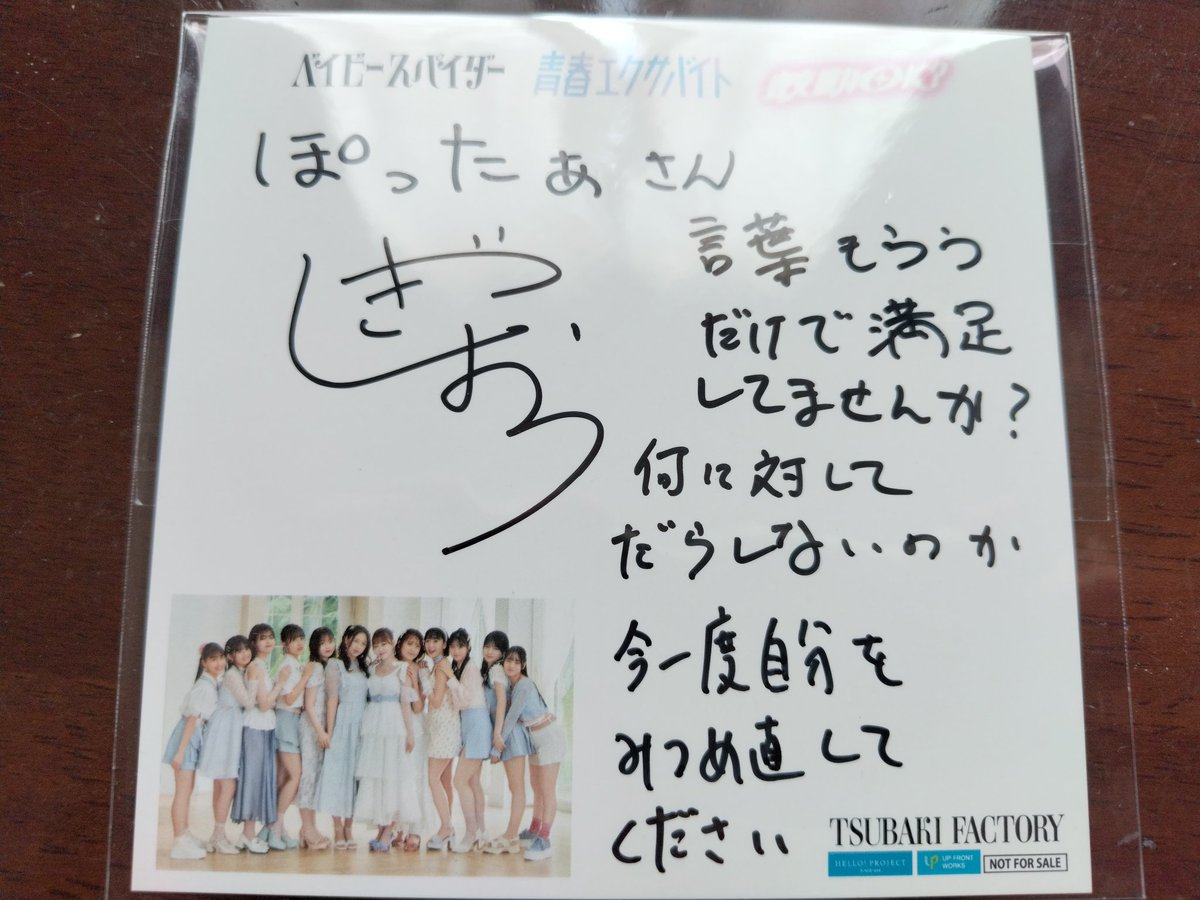 ベイビースパイダー 青春エクサバイト 最上級OK?
ぽったぁさん
言葉もらう
だけで満足
してませんか?
何に対して
だらしないのか
今一度自分を
みつめ直して
ください
TSUBAKI FACTORY
HELLO! PROJECT
UP FRONT WORKS
NOT FOR SALE